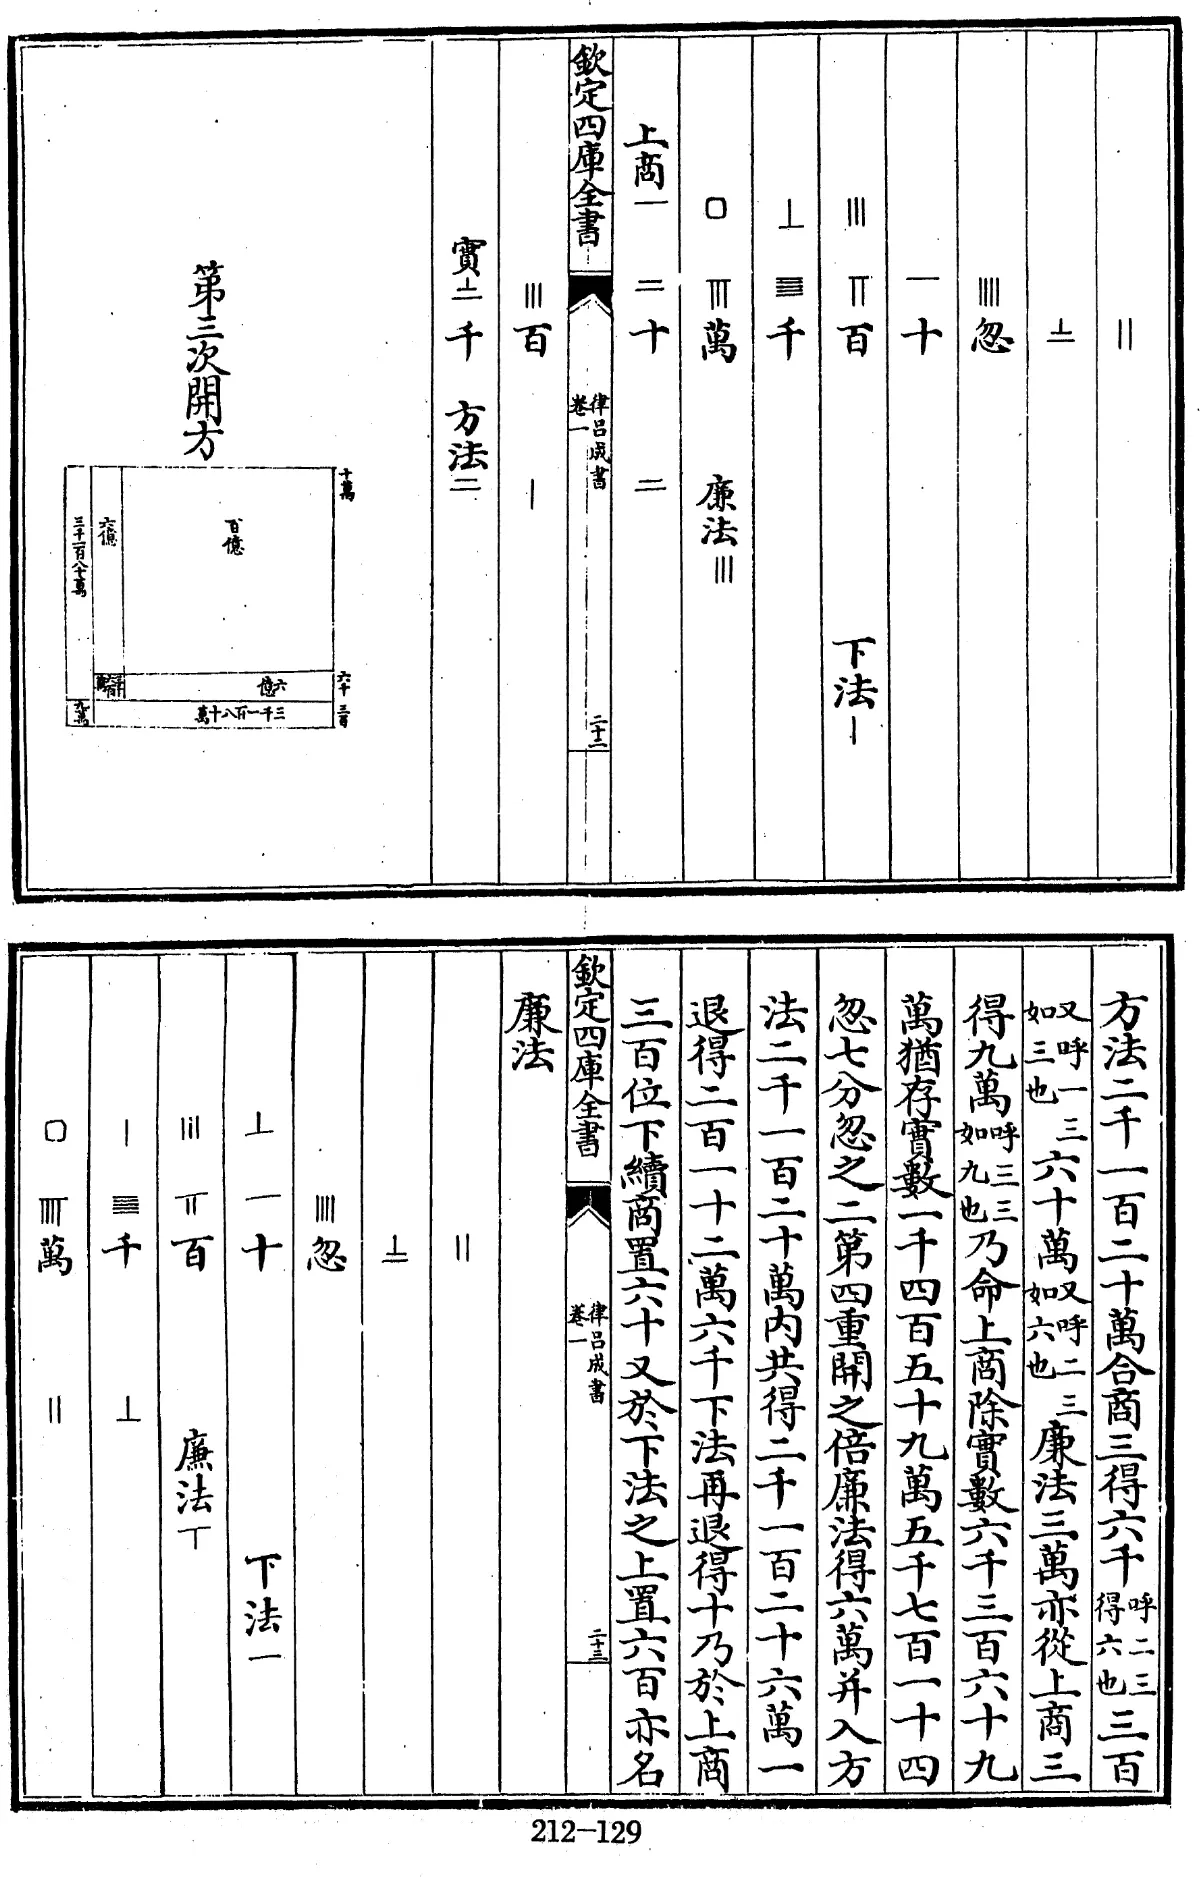 𝍡
𝍯
𝍣忽
𝍩十
𝍢 𝍦百 下法𝍠
𝍮 𝍭千
口 𝍧萬 廉法𝍢
上商𝍩 𝍪十 𝍪
欽定四庫全書
律呂成書
卷一
二十二
𝍢百 𝍠
實𝍯千 方法𝍪
第三次開方
十萬
六千
三百
百億
六億
三千一百八十萬
六億
三千一百八十萬
九萬
方法二千一百二十萬合商三得六千呼二三得六也三百
又呼一三如三也六十萬又呼二三如六也廉法三萬亦從上商三
得九萬呼三三如九也乃命上商除實數六千三百六十九
萬猶存實數一千四百五十九萬五千七百一十四
忽七分忽之二第四重開之倍廉法得六萬并入方
法二千一百二十萬內共得二千一百二十六萬一
退得二百一十二萬六千下法再退得十乃於上商
三百位下續商置六十又於下法之上置六百亦名
欽定四庫全書
律呂成書
卷一
二十三
廉法
𝍡
𝍯
𝍣忽
𝍮 𝍩十 下法𝍩
𝍢 𝍦百 廉法𝍥
𝍠 𝍭千 𝍮
口 𝍨萬 𝍡
212—129